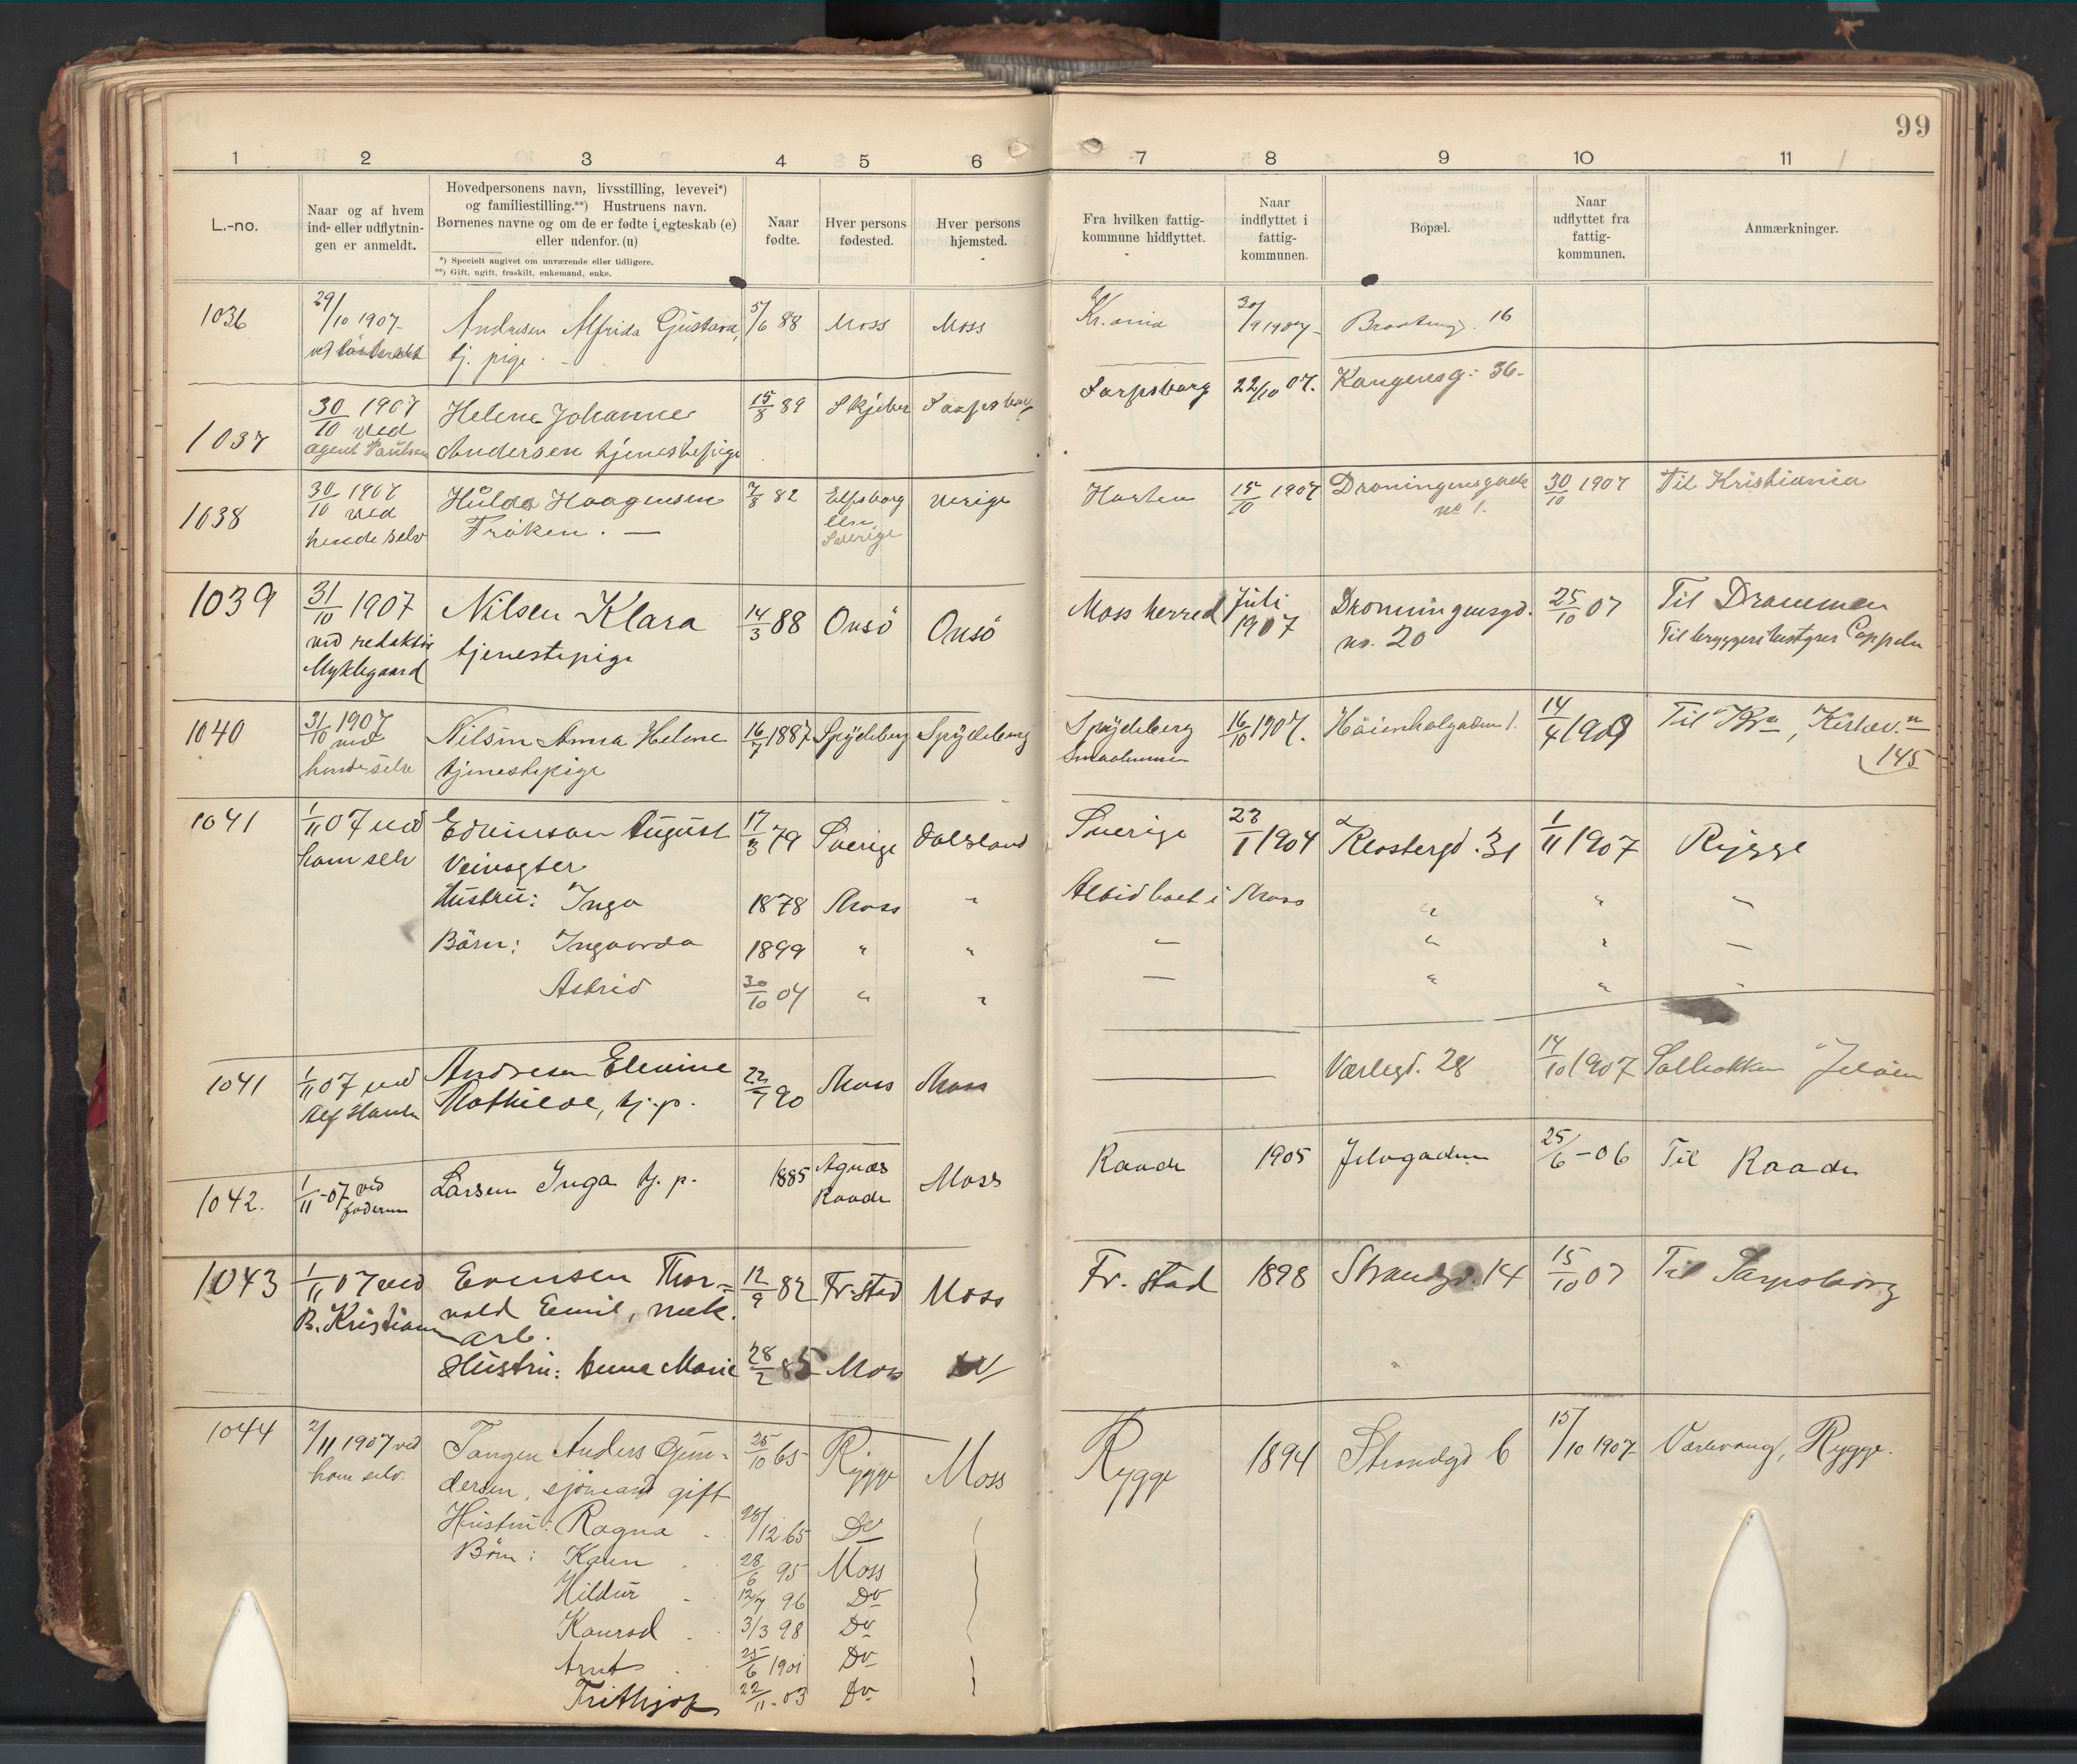 99
1 2 3 4 5 6 7 8 9 10 11
L.-no.
Naar og af hvem
ind- eller udflytnin-
gen er anmeldt.
Hovedpersonens navn, livsstilling, levevei*)
og familiestilling.**) Hustruens navn.
Børnenes navne og om de er fødte i egteskab (e)
eller udenfor. (u)
*) Specielt angivet om nuværende eller tidligere.
**) Gift, ugift, fraskilt, enkemand, enke.
Naar
fødte.
Hver persons
fødested.
Hver persons
hjemsted.
Fra hvilken fattig-
kommune hidflyttet.
Naar
indflyttet i
fattig-
kommunen.
Bopæl.
Naar
udflyttet fra
fattig-
kommunen.
Anmærkninger.
1036 29/10 1907 Andresen Alfrida Gustava, 5/6 88 Moss Moss Kr.ania 30/9 1907 16
tj. pige
1037 30/10 1907 ved Helene Johanne 15/8 89 Skjeber Sarpsborg Sarpsborg 22/10 07. Kongensg. 36.
agent Paulsen Andersen tjenestepige
1038 30/10 1907 ved Hulda Haagensen 7/8 82 Elfsborg Verige Horten 15/10 1907 Droningensgade 30/10 1907 Til Kristiania
hende selv Frøken. — len Sverige no 1.
1039 31/10 1907 Nilsen Klara 14/3 88 Onsö Onsö Moss herred Juli 1907 Dronningensgd. 25/10 07 Til Drammen
ved redaktør Myklegaard tjenestepige no. 20 Til bryggeribestyrer Cappelen
1040 31/10 1907 ved Nilsen Anna Helene 16/7 1887 Spydeberg Spydeberg Spydeberg 16/10 1907. Höienhalgaden 1. 14/4 1909 Til Kra, Kirkev.n
hende selv tjenestepige Smaalenene 145
1041 1/11 07 ved Edvinson August 17/3 79 Sverige Dalsland Sverige 23/1 1904 Klostergd. 31 1/11 1907 Rygge
ham selv Veivogter
Hustru: Inga 1878 Moss " Altid boet i Moss " " "
Börn: Ingvarda 1899 " " — " " —
Astrid 30/10 04 " " — " " "
1041 1/11 07 ved Andresen Elevine 22/7 90 Moss Moss — Værlegd. 28 14/10 1907 Solbakken Jelöen
Alf Hansen Mathilde, tj. p.
1042. 1/11-07 ved Larsen Inga tj. p. 1885 Agnæs Moss Raade 1905 Jelögaden 25/6-06 Til Raade
faderen Raade
1043 1/11 07 ved Evensen Thor- 12/9 82 Fr.stad Moss Fr. stad 1898 Strandgd. 14 15/10 07 Til Sarpsborg
B. Kristiansen vald Emil, mek.
arb.
Hustru: Anna Marie 28/2 85 Moss
1044 2/11 1907 ved Tangen Anders Gun- 25/10 65 Rygge Moss Rygge 1894 Strandgd 6 15/10 1907 Vårlivang, Rygge.
ham selv. dersen, sjömand gift
Hustru: Ragna 28/12 65 Do
Börn: Karen 28/6 95 Moss
Hildur 12/7 96 Do
Konrad 3/3 98 Do
Arnt 25/6 1901 Do
Frithjof 22/11.03 Do